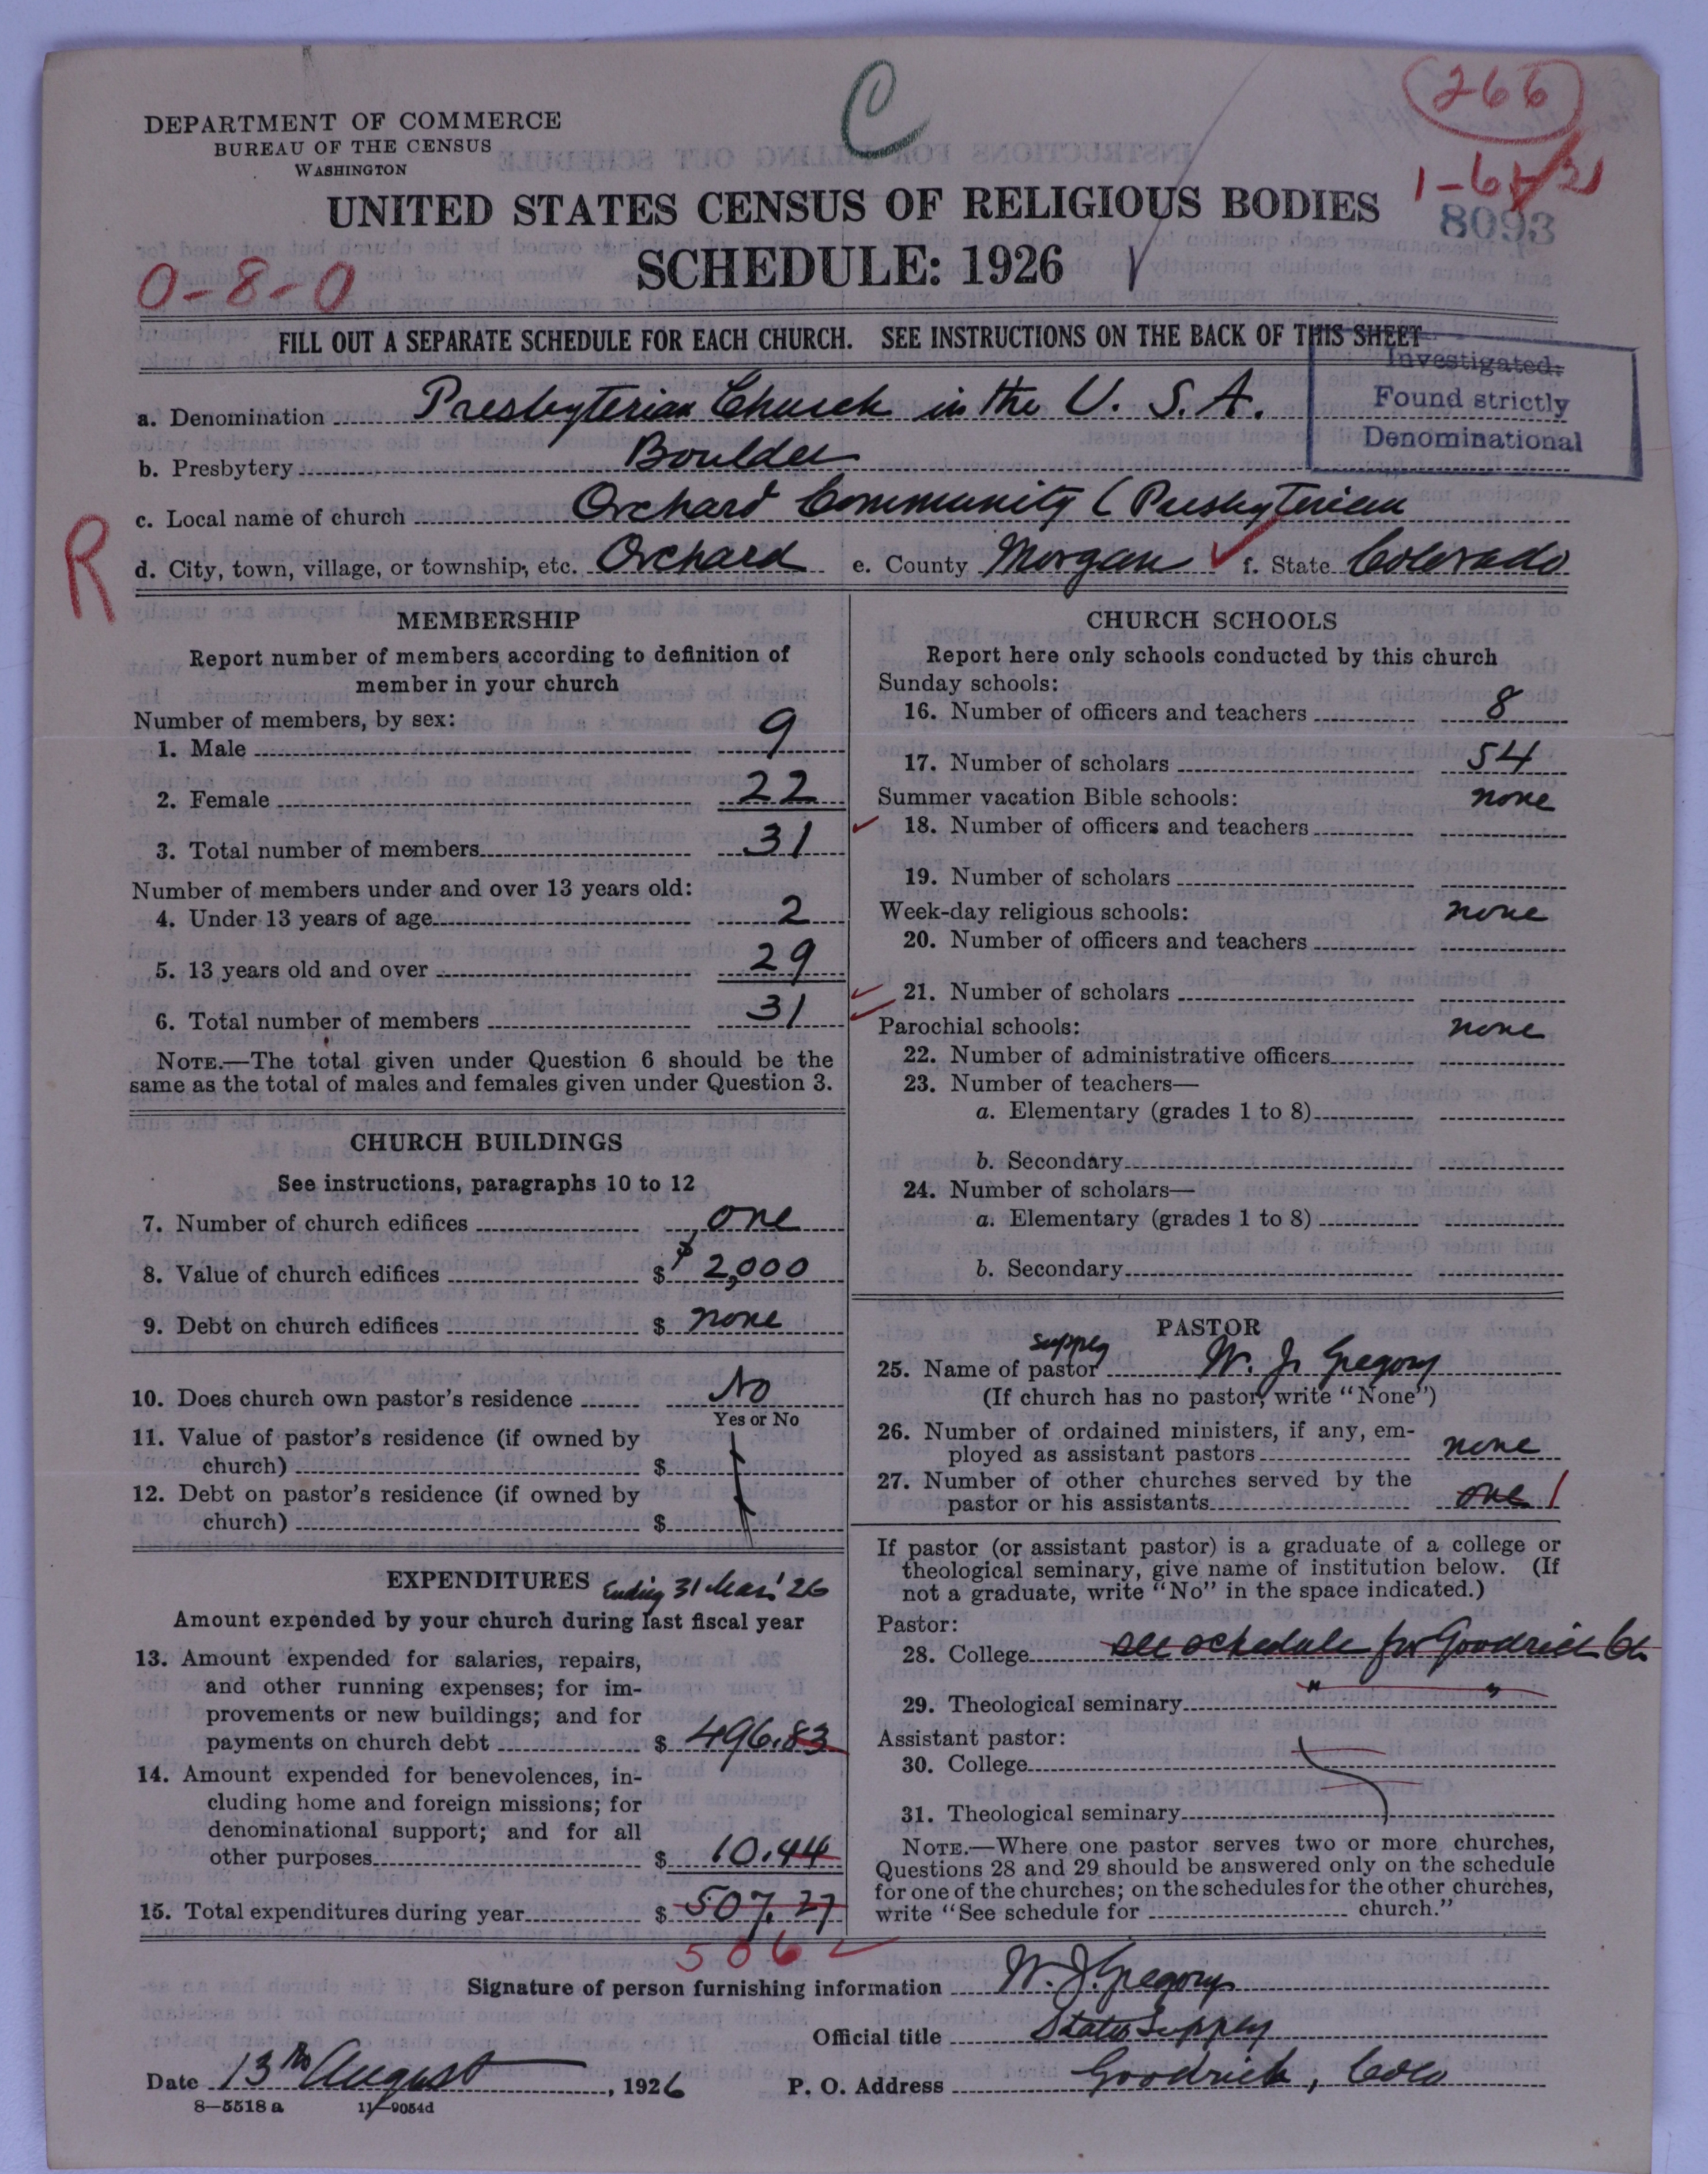 C
266
DEPARTMENT OF COMMERCE
BUREAU OF THE CENSUS
WASHINGTON
1-6
8093
UNITED STATES CENSUS OF RELIGIOUS BODIES
SCHEDULE: 1926
0-8-0
FILL OUT A SEPARATE SCHEDULE FOR EACH CHURCH. SEE INSTRUCTIONS ON THE BACK OF THIS SHEET
Investigated:
Found strictly
Denominational
a. Denomination Presbyterian Church in the U. S. A.
b. Presbytery Boulder
c. Local name of church Orchard Community (Presbyterian
R
d. City, town, village, or township, etc. Orchard e. County Morgan f. State Colorado
MEMBERSHIP
Report number of members according to definition of
member in your church
Number of members, by sex:
1. Male 9
2. Female 22
3. Total number of members 31
Number of members under and over 13 years old:
4. Under 13 years of age 2
5. 13 years old and over 29
6. Total number of members 31
NOTE.—The total given under Question 6 should be the
same as the total of males and females given under Question 3.
CHURCH BUILDINGS
See instructions, paragraphs 10 to 12
7. Number of church edifices one
8. Value of church edifices $ $2,000
9. Debt on church edifices $ none
10. Does church own pastor's residence No
Yes or No
11. Value of pastor's residence (if owned by
church) $
12. Debt on pastor's residence (if owned by
church) $
EXPENDITURES Ending 31 Mar' 26
Amount expended by your church during last fiscal year
13. Amount expended for salaries, repairs,
and other running expenses; for im-
provements or new buildings; and for
payments on church debt $ 496.83
14. Amount expended for benevolences, in-
cluding home and foreign missions; for
denominational support; and for all
other purposes $ 10.44
15. Total expenditures during year $ 507.27
506
CHURCH SCHOOLS
Report here only schools conducted by this church
Sunday schools:
16. Number of officers and teachers 8
17. Number of scholars 54
Summer vacation Bible schools: none
18. Number of officers and teachers
19. Number of scholars
Week-day religious schools: none
20. Number of officers and teachers
21. Number of scholars
Parochial schools: none
22. Number of administrative officers
23. Number of teachers—
a. Elementary (grades 1 to 8)
b. Secondary
24. Number of scholars—
a. Elementary (grades 1 to 8)
b. Secondary
PASTOR
supply
25. Name of pastor W. J. Gregory
(If church has no pastor, write "None")
26. Number of ordained ministers, if any, em-
ployed as assistant pastors none
27. Number of other churches served by the
pastor or his assistants one 1
If pastor (or assistant pastor) is a graduate of a college or
theological seminary, give name of institution below. (If
not a graduate, write "No" in the space indicated.)
Pastor:
28. College see schedule for Goodrich Ch.
29. Theological seminary " "
Assistant pastor:
30. College
31. Theological seminary
NOTE.—Where one pastor serves two or more churches,
Questions 28 and 29 should be answered only on the schedule
for one of the churches; on the schedules for the other churches,
write "See schedule for church."
Signature of person furnishing information W. J. Gregory
Official title Stated Supply
Date 13th August, 1926 P. O. Address Goodrich, Colo
8—5518 a 11—9054d